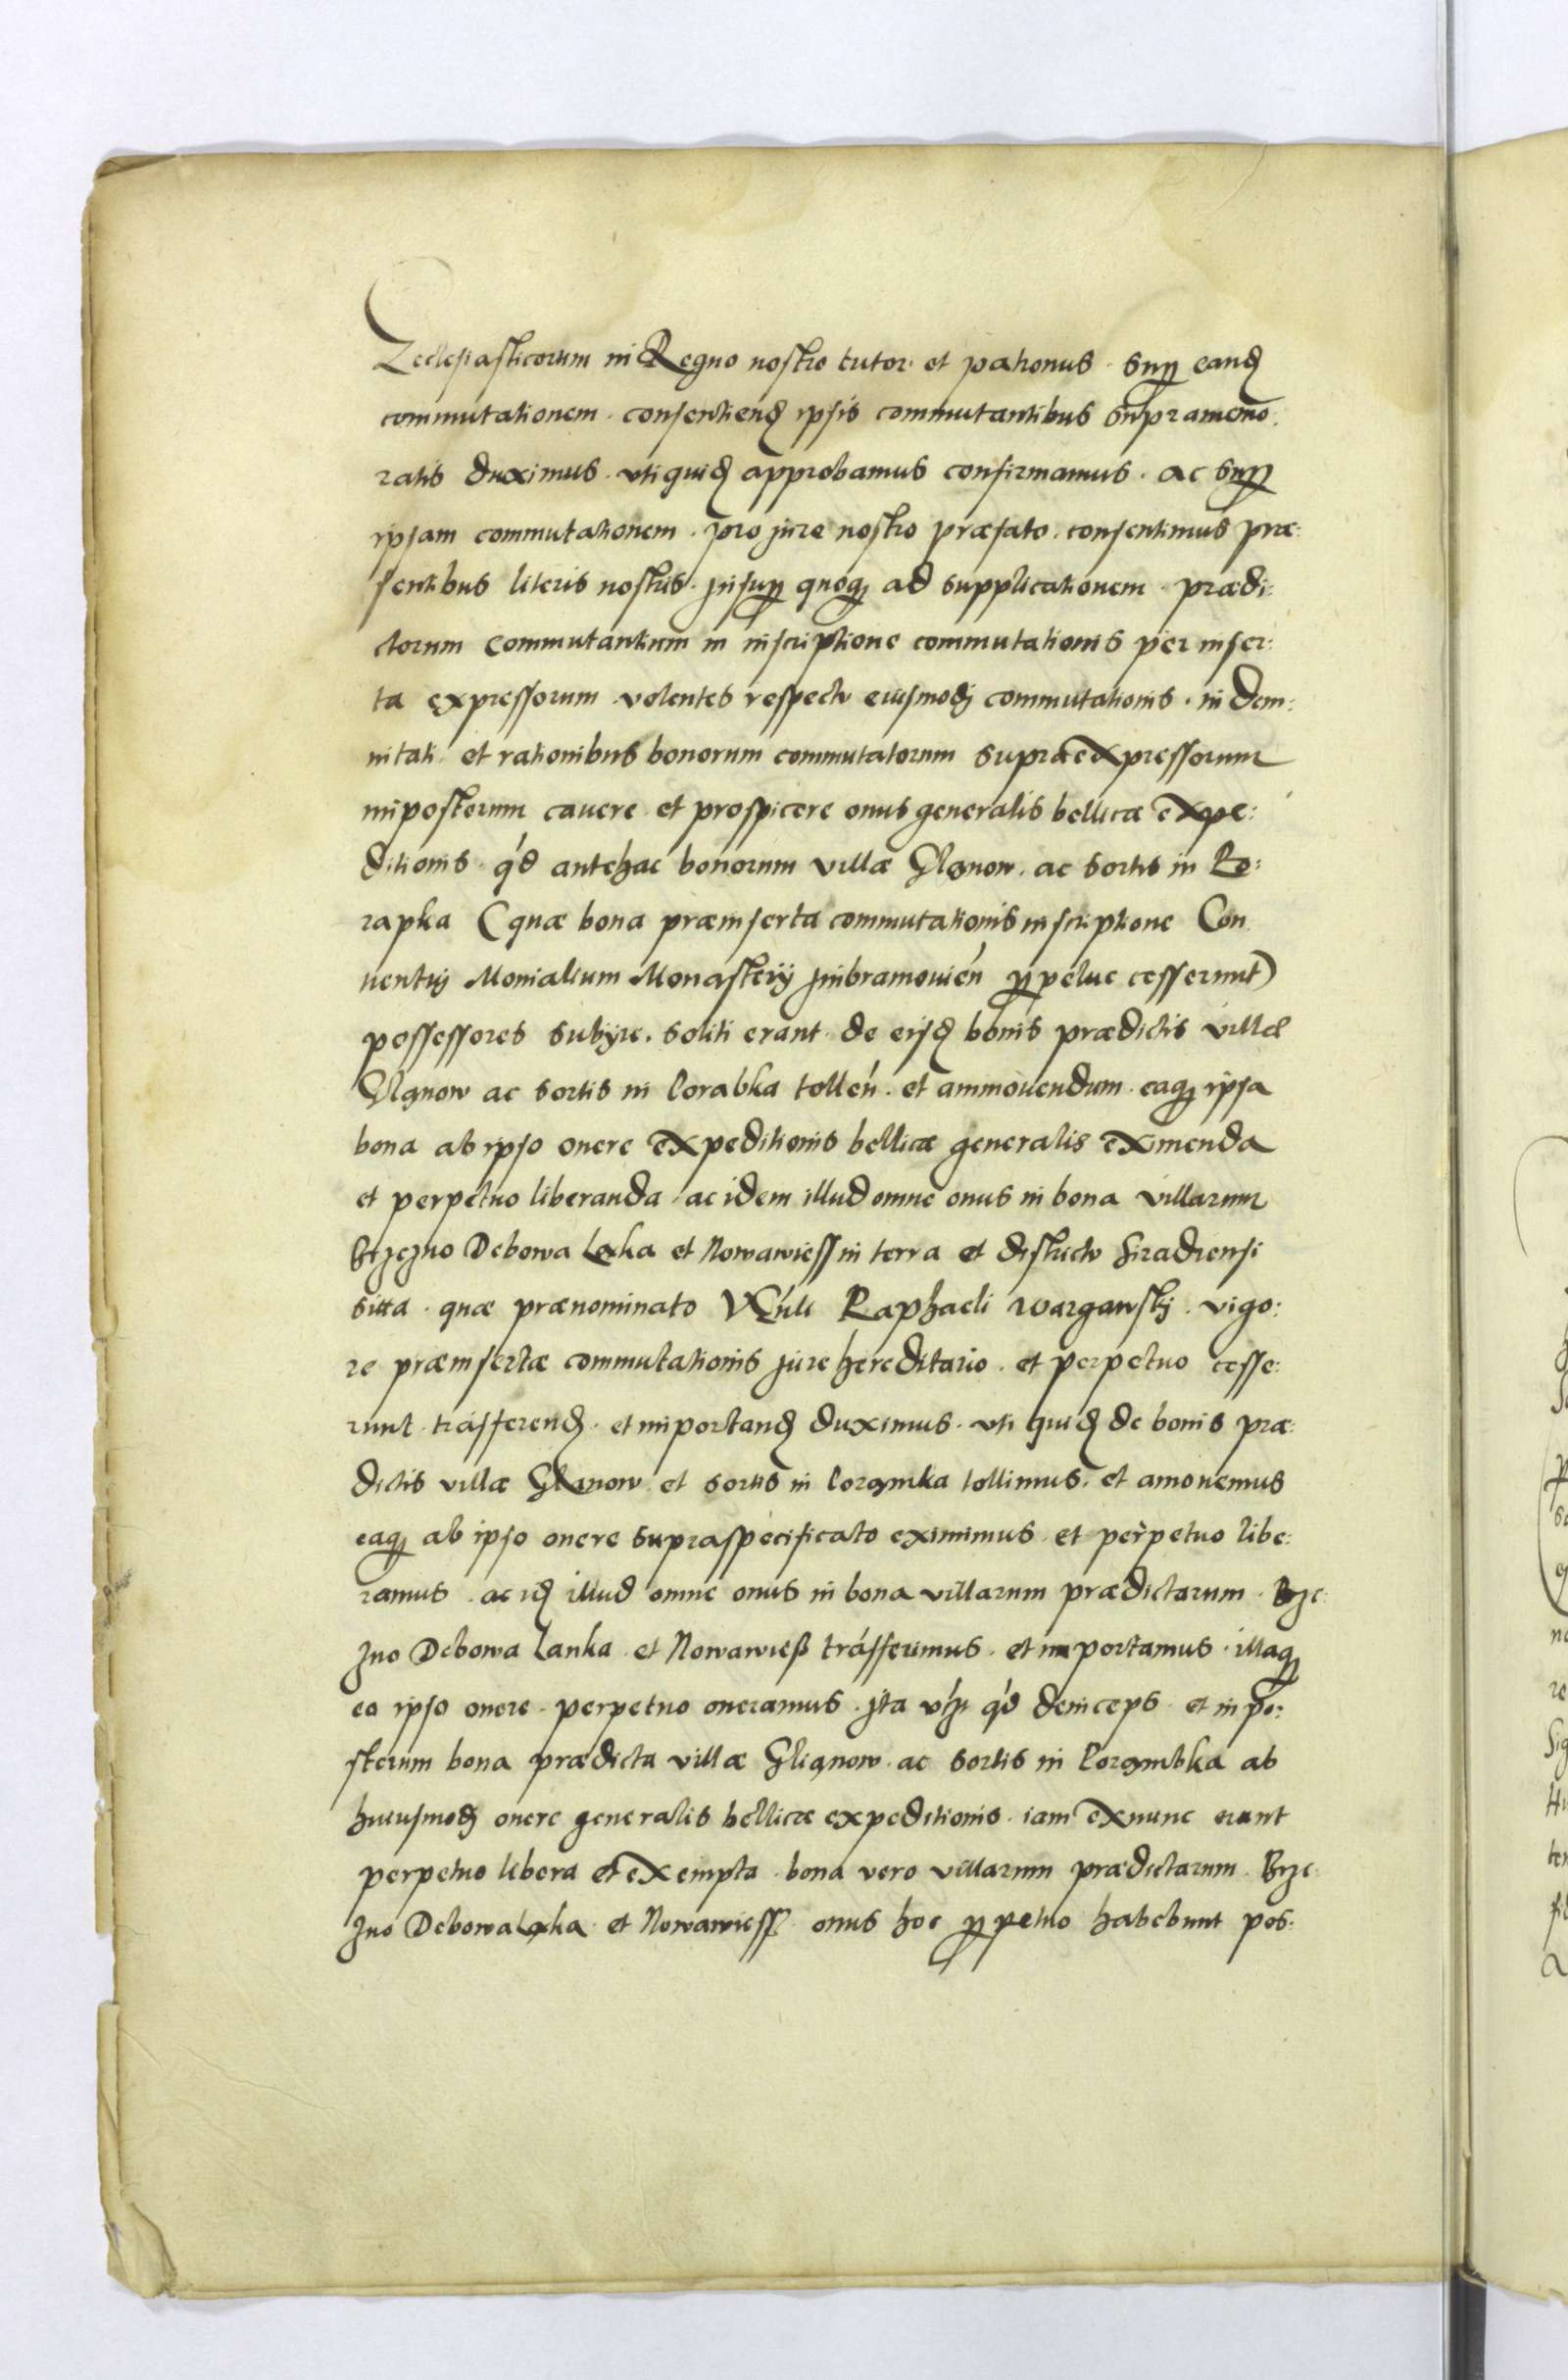 Ecclesiasticorum in Regno nostro tutor et patronus. Sup eand
commutationem. consentiend ipsis commutantibus supramemo:
ratis duximus. vti quid approbamus confirmamus. ac Sup
ipsam commutationem. pro jure nostro præfato. consentimus præ:
sentibus literis nostris. Insup quoq ad supplicationem prædi:
ctorum commutantium in inscriptione commutationis per inser:
ta expressorum volentes respectu eiusmodj commutationis. indem:
nitati et rationibus bonorum commutatorum supraexpressorum
inposterum cauere et prospicere onus generalis bellicæ expe:
ditionis q'd antehac bonorum villæ Glanow. ac sortis in Po:
rapka (quæ bona præinserta commutationis inscriptione Con
uentuj Monialium Monasterij Jmbramouien' ppetue cesserunt)
possessores subijre. soliti erant de eisd bonis prædictis villæ
Glanow ac sortis in Porabka tollen'. et ammouendum. eaq ipsa
bona ab ipso onere expeditionis bellicæ generalis eximenda
et perpetuo liberanda ac idem illud omne onus in bona villarum
Brzezno Debowa Laka et Nowawiess in terra et districtu Siradiensi
sitta. quæ prænominato Raphaeli Wargawskj. vigo:
re præinsertæ commutationis jure hereditario. et perpetuo cesse:
runt tra'sferend. et inportand duximus. vti quid de bonis præ:
dictis villæ Glanow et sortis in Porąmka tollimus. et amouemus
eaq ab ipso onere supraspecificato eximimus et perpetuo libe:
ramus. ac id illud omne onus in bona villarum prædictarum. Brze:
zno Debowa Lanka et Nowawieß tra'sferimus. et inportamus. illaq
eo ipso onere perpetuo oneramus. Jta q'd deinceps et inpo:
sterum bona prædicta villæ Glianow. ac sortis in Porąmbka ab
huiusmodj onere generalis bellicæ expeditionis. iam exnunc erunt
perpetuo libera et exempta. bona vero villarum prædictarum. Brze:
zno Debowa Laka et Nowawiess onus hoc ppetuo habebunt pos: